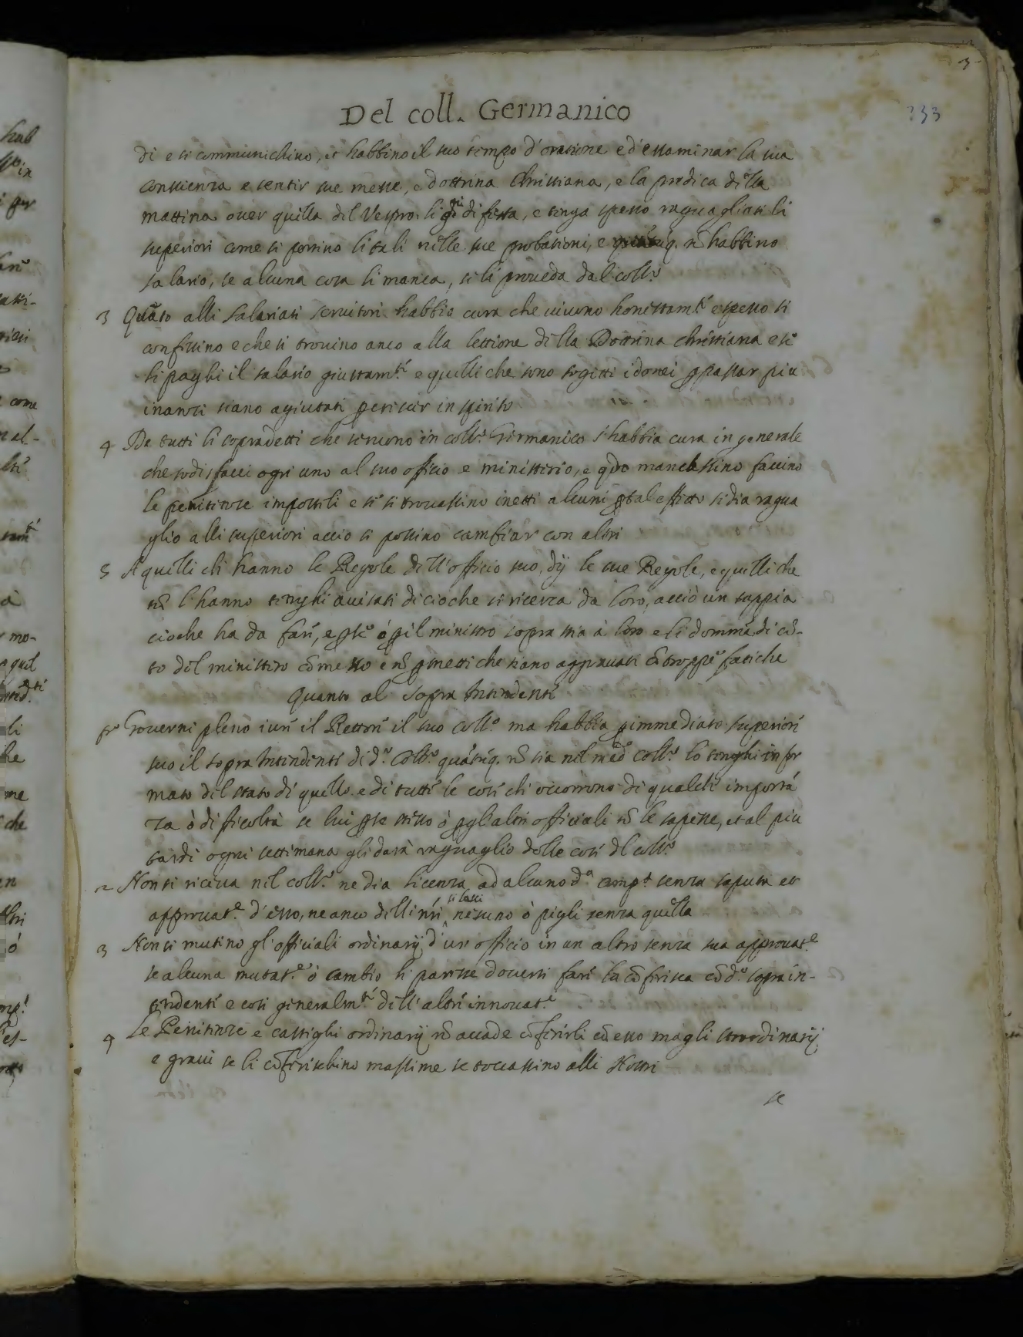 3
Del coll. Germanico
333
di e si communichino, et habbino il suo tempo d'oratione e d'essaminar la sua
conscienza e sentir sue messe, e dottrina Christiana, e la predica della
mattina over quella del Vespro li gni di festa, e tenga spesso raguagliati li
superiori come si portino li tali nelle sue probationi, e nō habbino
salario, se alcuna cosa li manca, si li proveda dal coll.o
3 Quāto alli salariati servitori habbia cura che vivono honestam.te e spesso si
confessino e che si trovino anco alla lettione della Dottrina christiana e se
li paghi il salario giustam.te e quelli che sono sogetti idonei p passar piu
inanzi siano agiutati p in spirito
4 De tutti li sopradetti che servono in coll.o Germanico s'habbia cura in generale
che sodisfacci ogni uno al suo officio e ministerio, e qdo mancassino faccino
le penitenze imposteli e se si trovassino inetti alcuni p tal effetto si dia ragua
glio alli superiori accio si possino cambiar con altri
5 A quelli ch hanno le Regole dell'officio suo, dij le sue Regole, e quelli che
nō l'hanno tenghi avisati di cioche si ricerca da loro, acciò un sappia
cioche ha da fare, e p se ó p il ministro sopra stia à loro e li dommādi cō-
to del ministerio cōmesso e nō pmetti che siano aggravati cō troppe fatiche
Quanto al Sopra Intendente
pr.o Governi pleno iure il Rettore il suo coll.o ma habbia p immediato superiore
suo il sopra Intendente di d.o coll.o quātūq. nō stia nel med.o coll.o lo tenghi infor
mato del stato di quello e di tutte le cose ch occorrono di qualch importā
za ò dificoltà se lui p se stesso ò p gl'altri officiali nō le sapesse, et al piu
tardi ogni settimana gli darà raguaglio delle cose dl coll.o
2 Non si riceva nel coll.o ne dia licenza ad alcuno d.a comp.a senza saputa et
approvat.e d'esso, ne anco delli nri si lasci nesuno ò pigli senza quella
3 Non si mutino gl'officiali ordinarij d'un officio in un altro senza sua approvat.e
se alcuna mutat.e ò cambio li paresse doversi fare la cōferisca cō d.o soprain-
tendente e cosi generalm.te dell'altre innovat.e
4 Le Penitenze e castighi ordinarij nō accade cōferirli cō esso ma gli straordinarij
e gravi se li cōferirebbino massime se toccassino alli Nostri
se